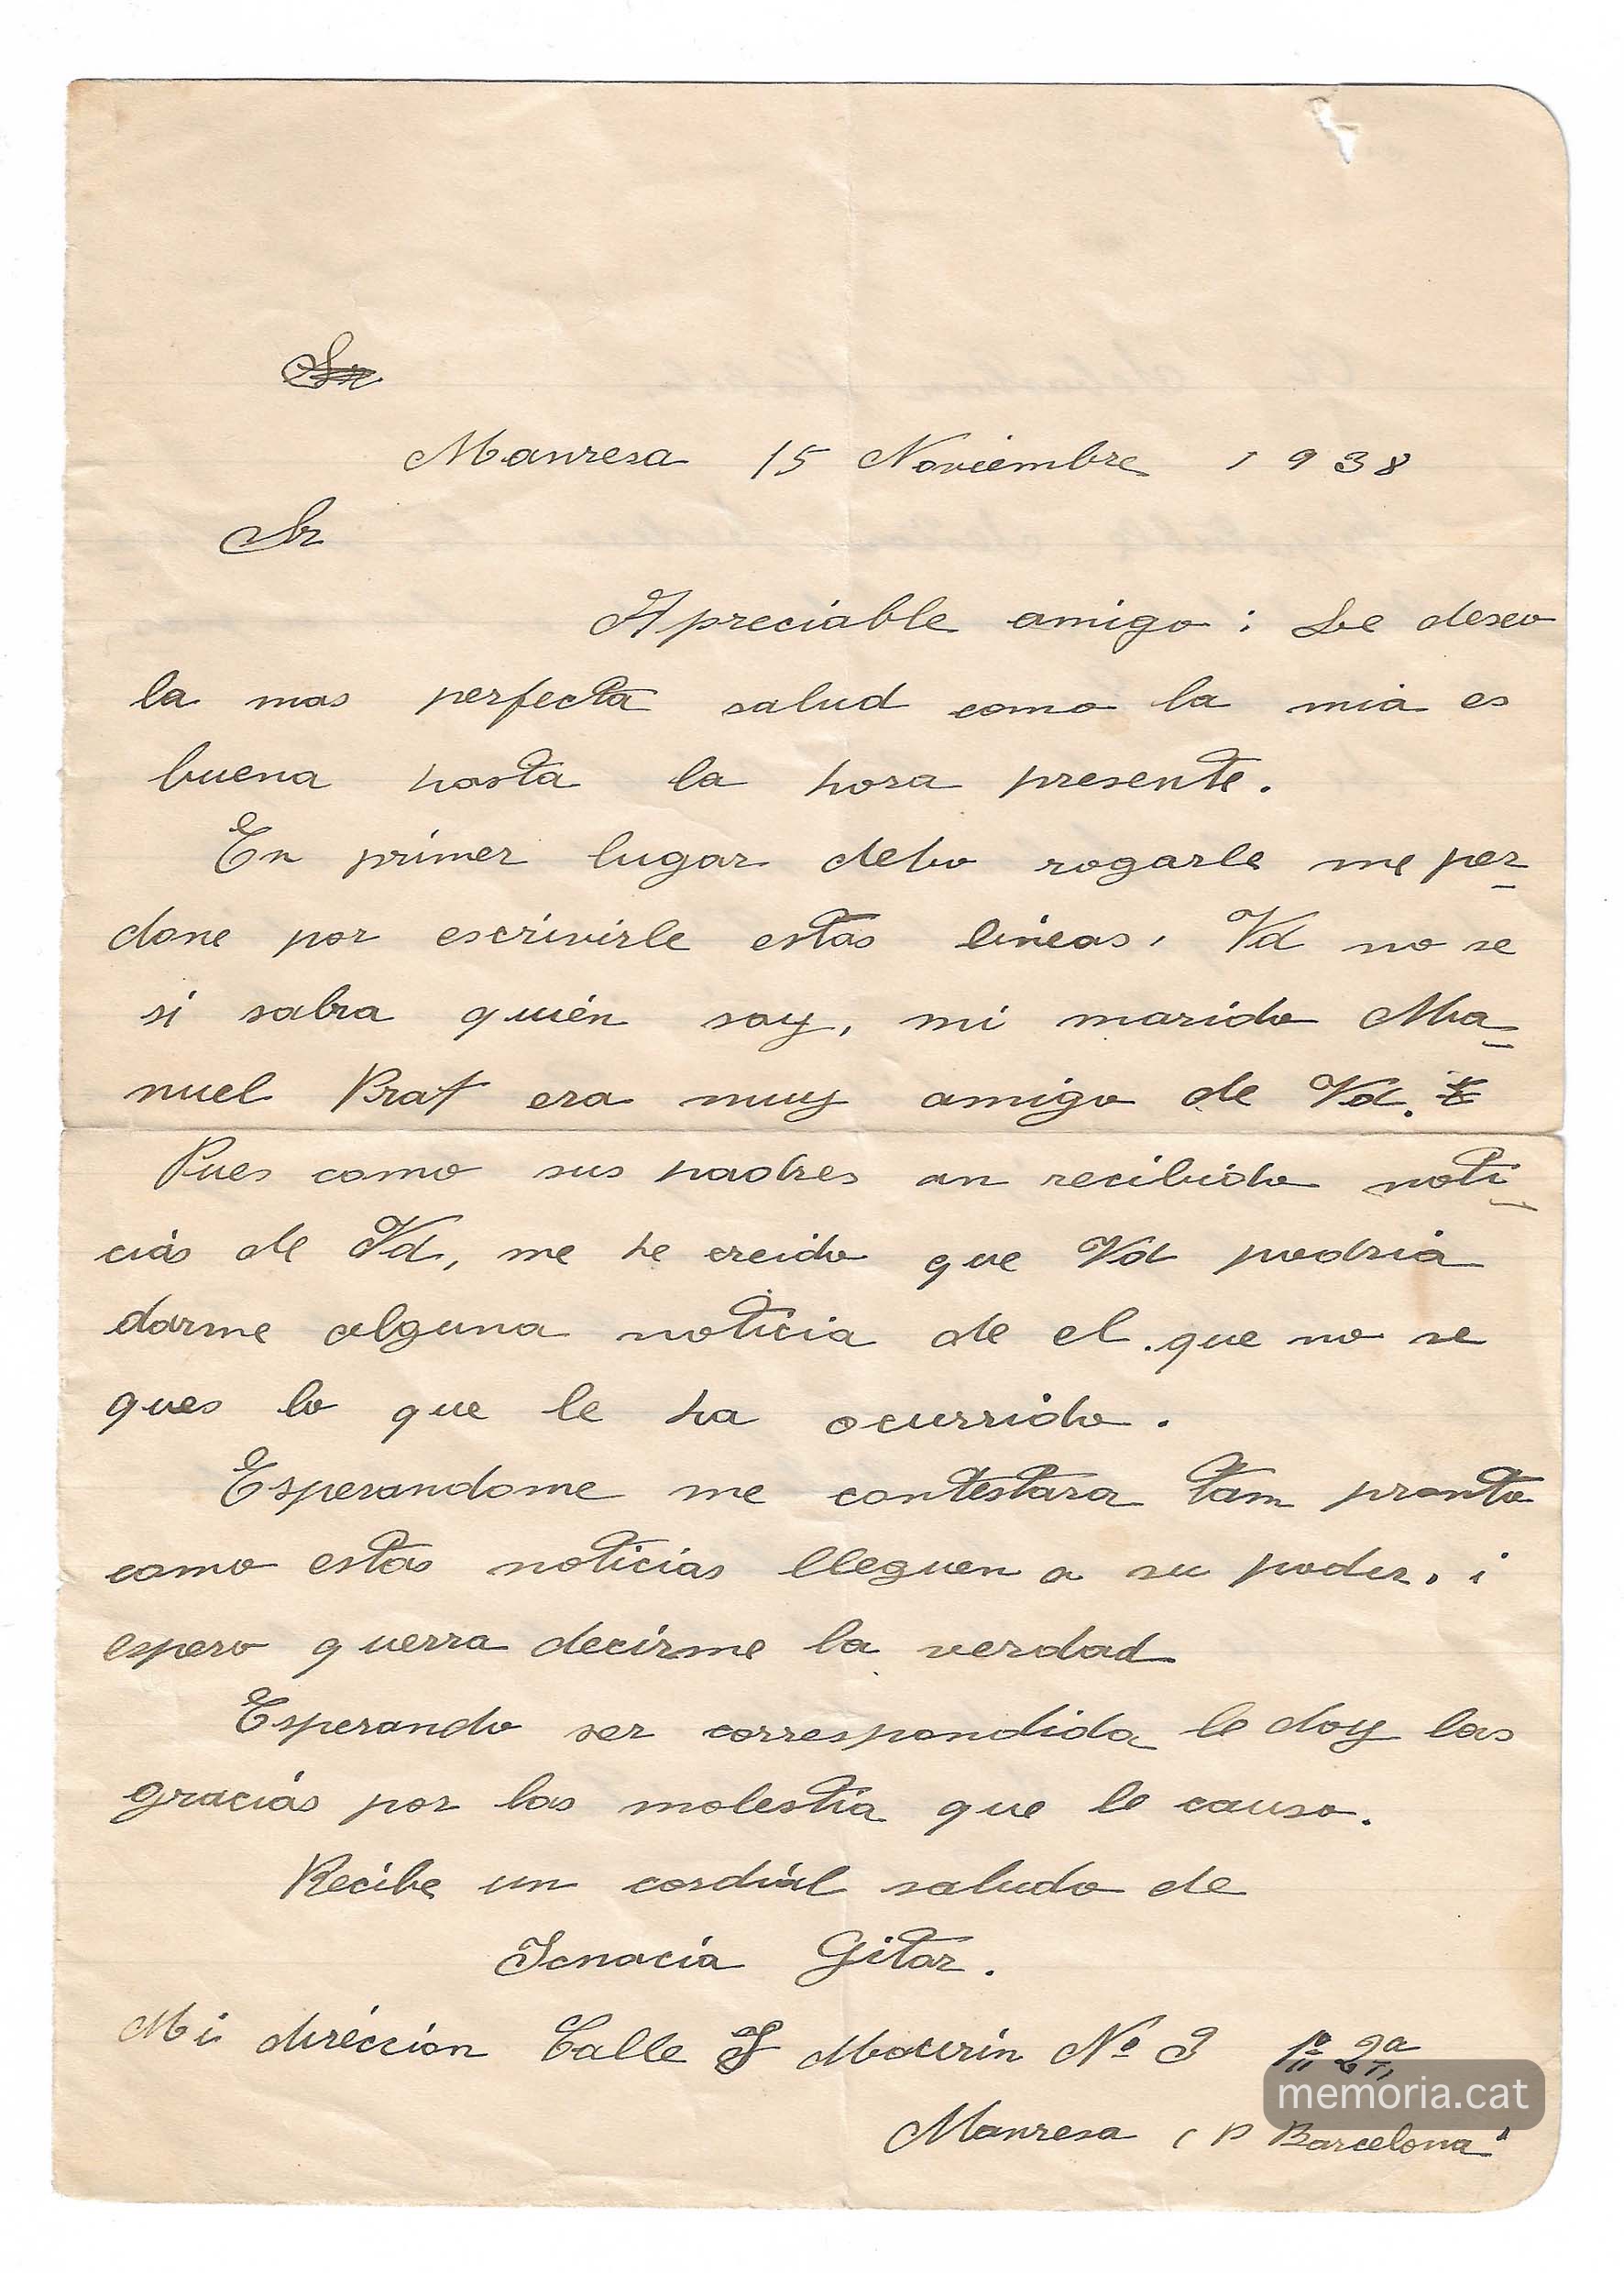 Sr
Manresa 15 Noviembre 1938
Sr
Apreciable amigo: Le deseo
la mas perfecta salud como la mia es
buena hasta la hora presente.
En primer lugar debo rogarle me per-
done por escrivirle estas lineas, Vd no se
si sabra quién soy, mi marido Ma-
nuel Prat era muy amigo de Vd.
Pues como sus padres an recibido noti-
cias de Vd, me he creido que Vd podria
darme alguna noticia de el. que no se
ques lo que le ha ocurrido.
Esperandome me contestara tam pronto
como estas noticias lleguen a su poder, i
espero querra decirme la verdad
Esperando ser correspondida le doy las
gracias por las molestia que le causo.
Recibe un cordial saludo de
Icnacia Gitar.
Mi direccion Calle J Maurin Nº 3 1º 2ª
memoria.cat
Manresa (P Barcelona"